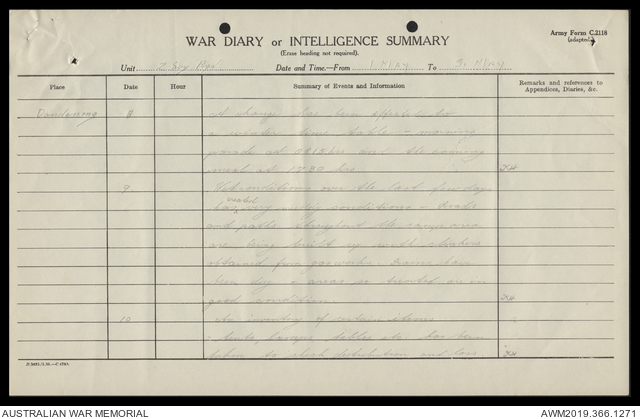 Army Form C.2118
(adapted)
WAR DIARY or INTELLIGENCE SUMMARY
(Erase heading not required).
Unit 2 Date and Time—From 1 May To 31 May
Place Date Hour Summary of Events and Information Remarks and references to Appendices, Diaries, &c.
Dandenong 8 A change has been effected to
a winter time table - morning
parade at 0815 hrs and the evening
meal at 1730 hrs
9 Wet conditions over the last few days
has created very conditions - roads
and paths throughout the camp area
are being built up with
obtained from gasworks. Drains have
been dug & areas so treated are in
good condition
10 An inventory of certain stores
- tents, tables etc has been
taken to check distribution and
AUSTRALIAN WAR MEMORIAL AWM2019.366.1271